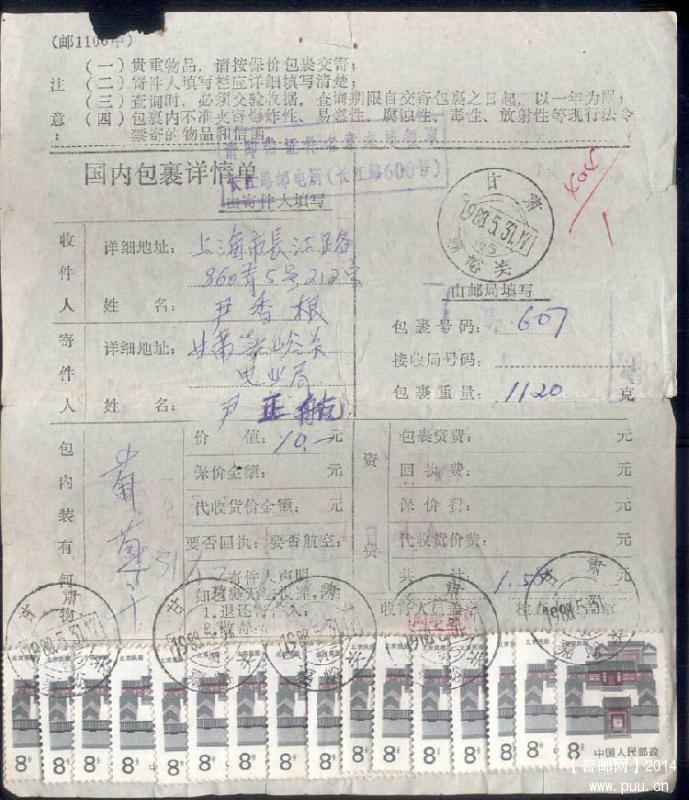 (邮1106甲)
(一)贵重物品，请按保价包裹交寄；
注 (二)寄件人填写栏应详细填写清楚；
(三)查询时，必须交验收据。查询期限自交寄包裹之日起，以一年为限；
意 (四)包裹内不准夹寄爆炸性、易燃性、腐蚀性、毒性、放射性等现行法令
： 禁寄的物品和信函。
长江路邮电所(长江路600号)
国内包裹详情单
由寄件人填写
甘肃
1988.5.31.17
嘉峪关
收件人 详细地址： 上海市長江路
860弄5号212室
姓 名： 尹香根
由邮局填写
包裹号码： 607
寄件人 详细地址： 甘肃嘉峪关
电业局
接收局号码：
姓 名： 尹
包裹重量： 1120 克
包内装有何物
价 值： 10.— 元
保价金额： 元
代收货价金额： 元
要否回执： 要否航空：
寄件人声明
如包裹无法投递：
1.退还寄件人；
资费
包裹资费： 元
回执费： 元
保价费： 元
代收货价费： 元
共 计
收寄人员盖章
甘肃
1988.5.31.17
嘉峪关
北京民居
8分
中国人民邮政
【普邮网】2014
www.puu.cn